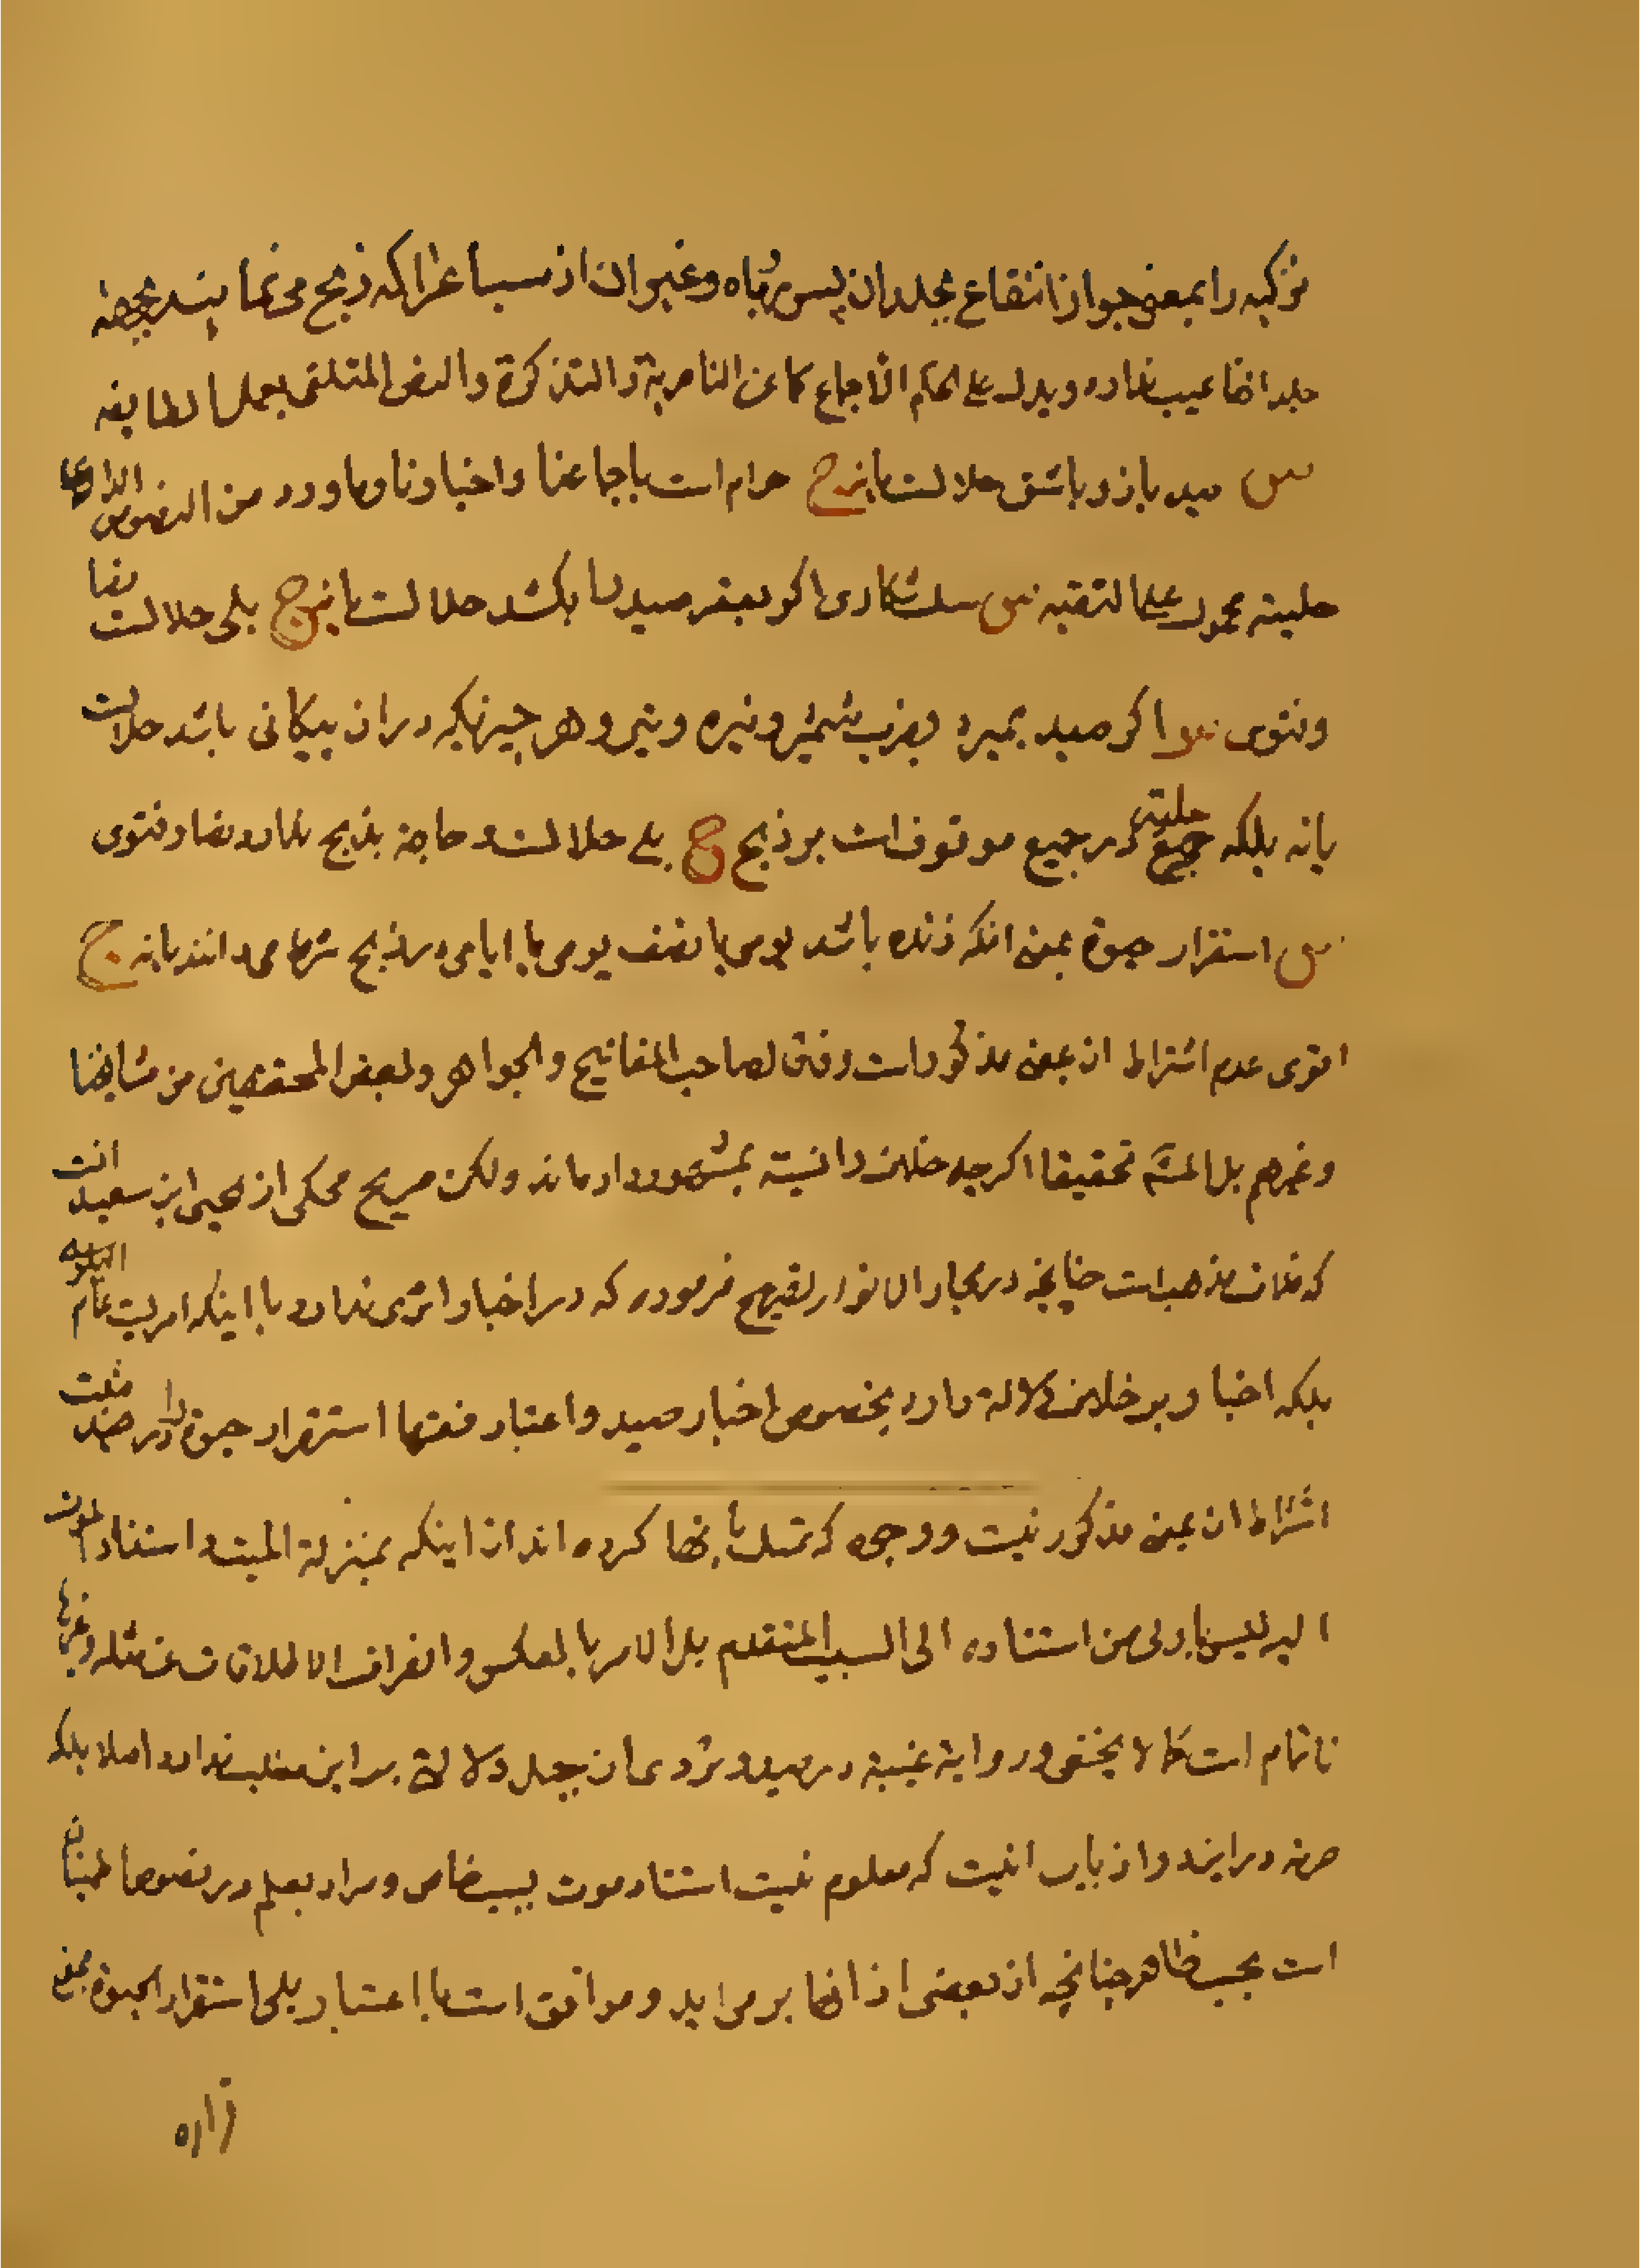 تزکیه را بمعنی جواز انتفاع بجلد ان پس روباه و غیر ان از سباع را که ذبح می نمایند بجهة
جلد انها عیب ندارد و یدل علی الحکم الاجماع کما عن الناصریة و التذکرة و النص المتلقی بعمل الطایفه
س صید باز و باشق حلالست یا نه ج حرام است باجماعنا و اخبارنا و ما ورد من النصوص الدالة علی
حلیته محمول علی التقیه س سك شکاری اکر بعقر صید را بکشد حلالست یا نه ج بلی حلالست نصا
و فتوی س اکر صید بمیرد بضرب شمشیر و نیزه و تیر و هر چیزیکه در ان پیکانی باشد حلالست
یا نه بلکه حلیتی در جمیع موقوف است بر ذبح ج بلی حلالست و حاجة بذبح ندارد نصا و فتوی
س استقرار حیوة بمعنی انکه زنده باشد یومی یا نصف یومی یا ایامی در ذبح شرط می دانند یا نه ج
اقوی عدم اشتراط ان بمعنی مذکور است وفق لصاحب المفاتیح و الجواهر و لبعض المحققین من مشایخنا
و غیرهم بل المش تحقیقا اکر چه خلاف را نسبة بمشهور داده اند و لکن صریح محکی از یحیی ابن سعید انست
که خلاف مذهب است چنانچه در بحار الانوار تصریح فرموده که در اخبار اثری ندارد با اینکه امریست عام البلوی
بلکه اخبار بر خلاف دلالة دارد بخصوص اخبار صید و اعتبار فقها استقرار حیوة را در صید مثبت
اشتراط ان بمعنی مذکور نیست و وجوهی که تمسك بانها کرده اند از اینکه بمنزلة المیت و استناد الموت
الیه لیس باولی من استناده الی السبب المتقدم بل الامر بالعکس و انصراف الاطلاقات عن مثله و غیرها
ناتمام است کما لا یخفی و روایة غیبة در صید و تردی از جبل دلالة بر این مطلب ندارد اصلا بلکه
صرفه در ایند و از باب انیست که معلوم نیست استناد موت بسبب خاص و مراد بعلم در نصوص اطمینان
است بحسب ظاهر چنانچه از بعضی از انها بر می اید و موافق است با اعتبار بلی استقرار الحیوة بمعنی